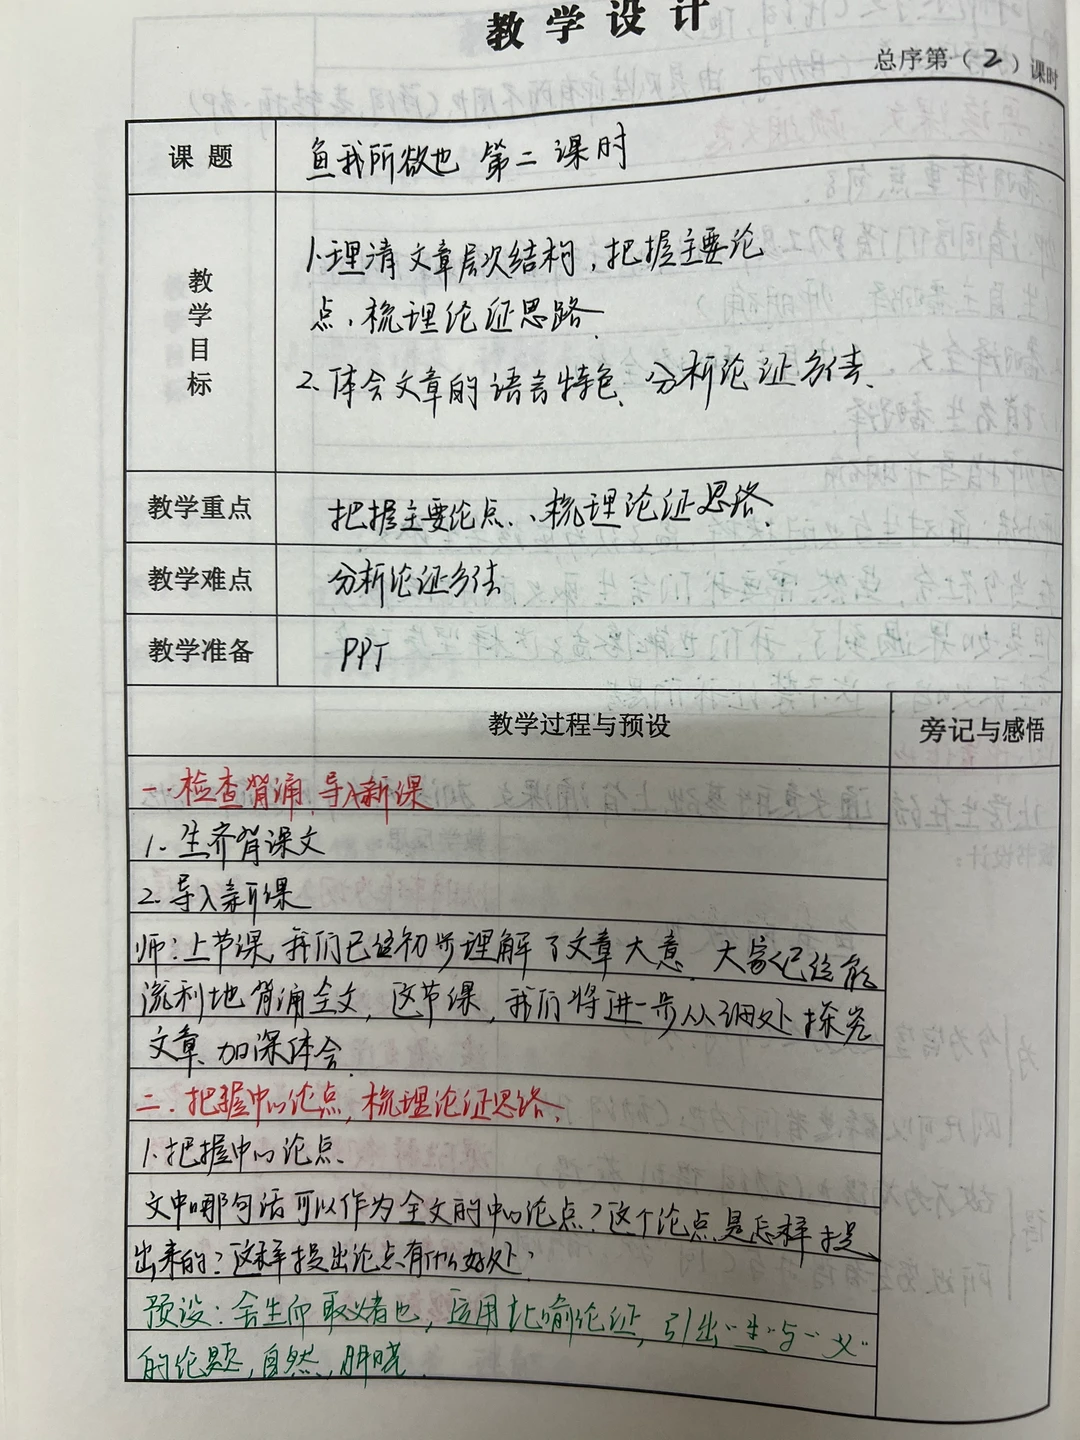 教学设计
总序第（2）课时
课题 鱼我所欲也 第二课时
教学目标
1.理清文章层次结构，把握主要论
点，梳理论证思路。
2.体会文章的语言特色、分析论证方法。
教学重点 把握主要论点、梳理论证思路。
教学难点 分析论证方法
教学准备 PPT
教学过程与预设 旁记与感悟
一.检查背诵，导入新课
1.生齐背课文
2.导入新课
师：上节课，我们已经初步理解了文章大意，大家已经能
流利地背诵全文，这节课，我们将进一步从细处探究
文章、加深体会。
二.把握中心论点，梳理论证思路。
1.把握中心论点。
文中哪句话可以作为全文的中心论点？这个论点是怎样提
出来的？这样提出论点有什么好处？
预设：舍生而取义者也，运用比喻论证，引出“生”与“义”
的论题，自然，明晓。